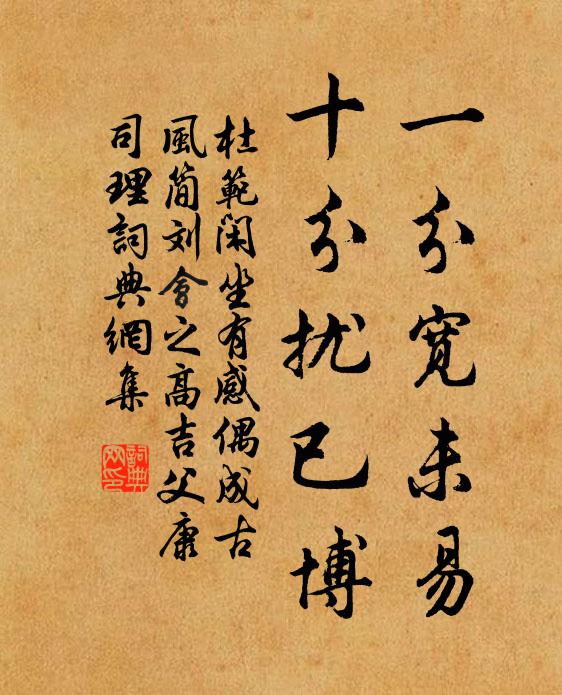 一分寬未易
十分扰已博
杜範閑坐有感偶成古
風简刘會之高吉父康
司理詞典網集
詞典網印